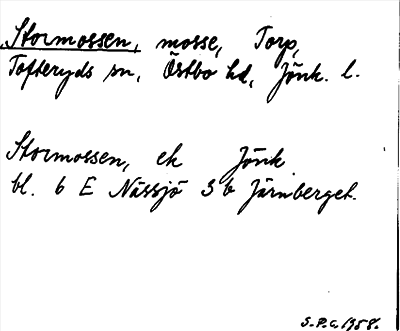 Stormossen, mosse, Torp,
Tofteryds sn, Östbo hd, Jönk. l.
Stormossen, ek Jönk
bl. 6 E Nässjö 3 b Järnberget.
S.P.C. 1958.